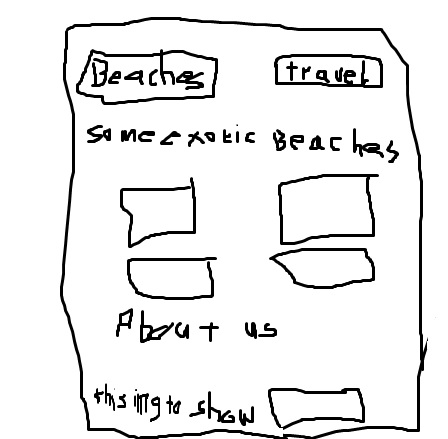 Beaches travel
some exotic Beaches
About us
to show